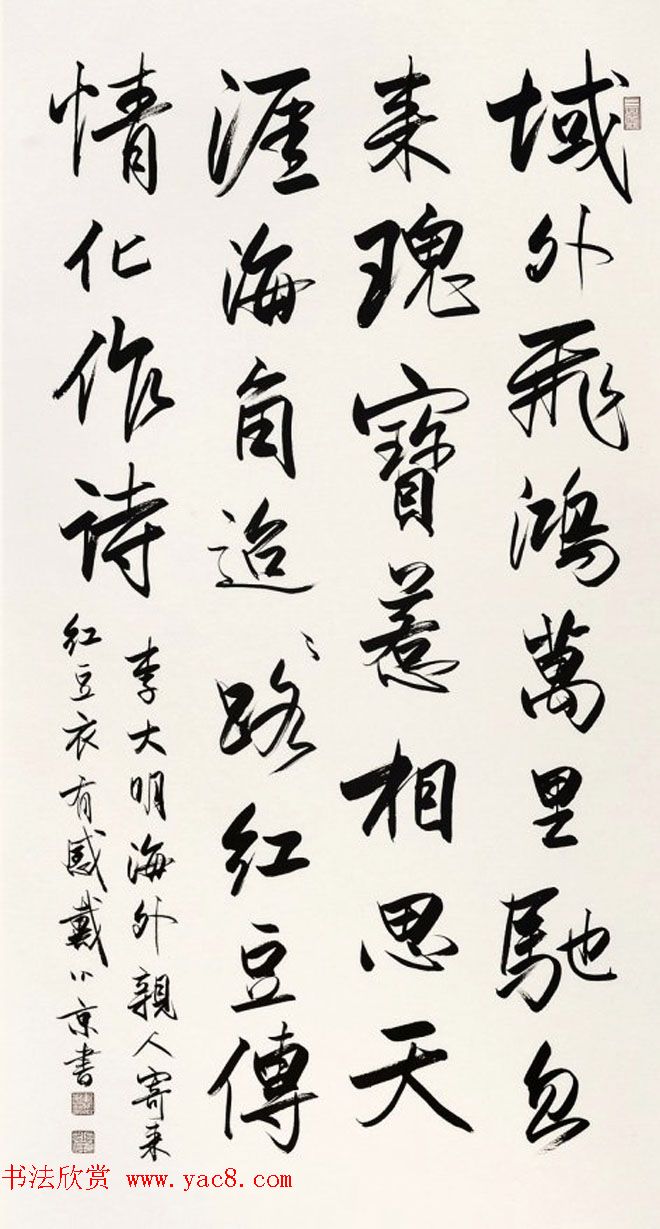 域外飛鴻萬里馳忽
来瑰寶惹相思天
涯海角迢〻路红豆傳
情化作诗
李大明海外親人寄来
红豆衣有感戴小京書
书法欣赏 www.yac8.com